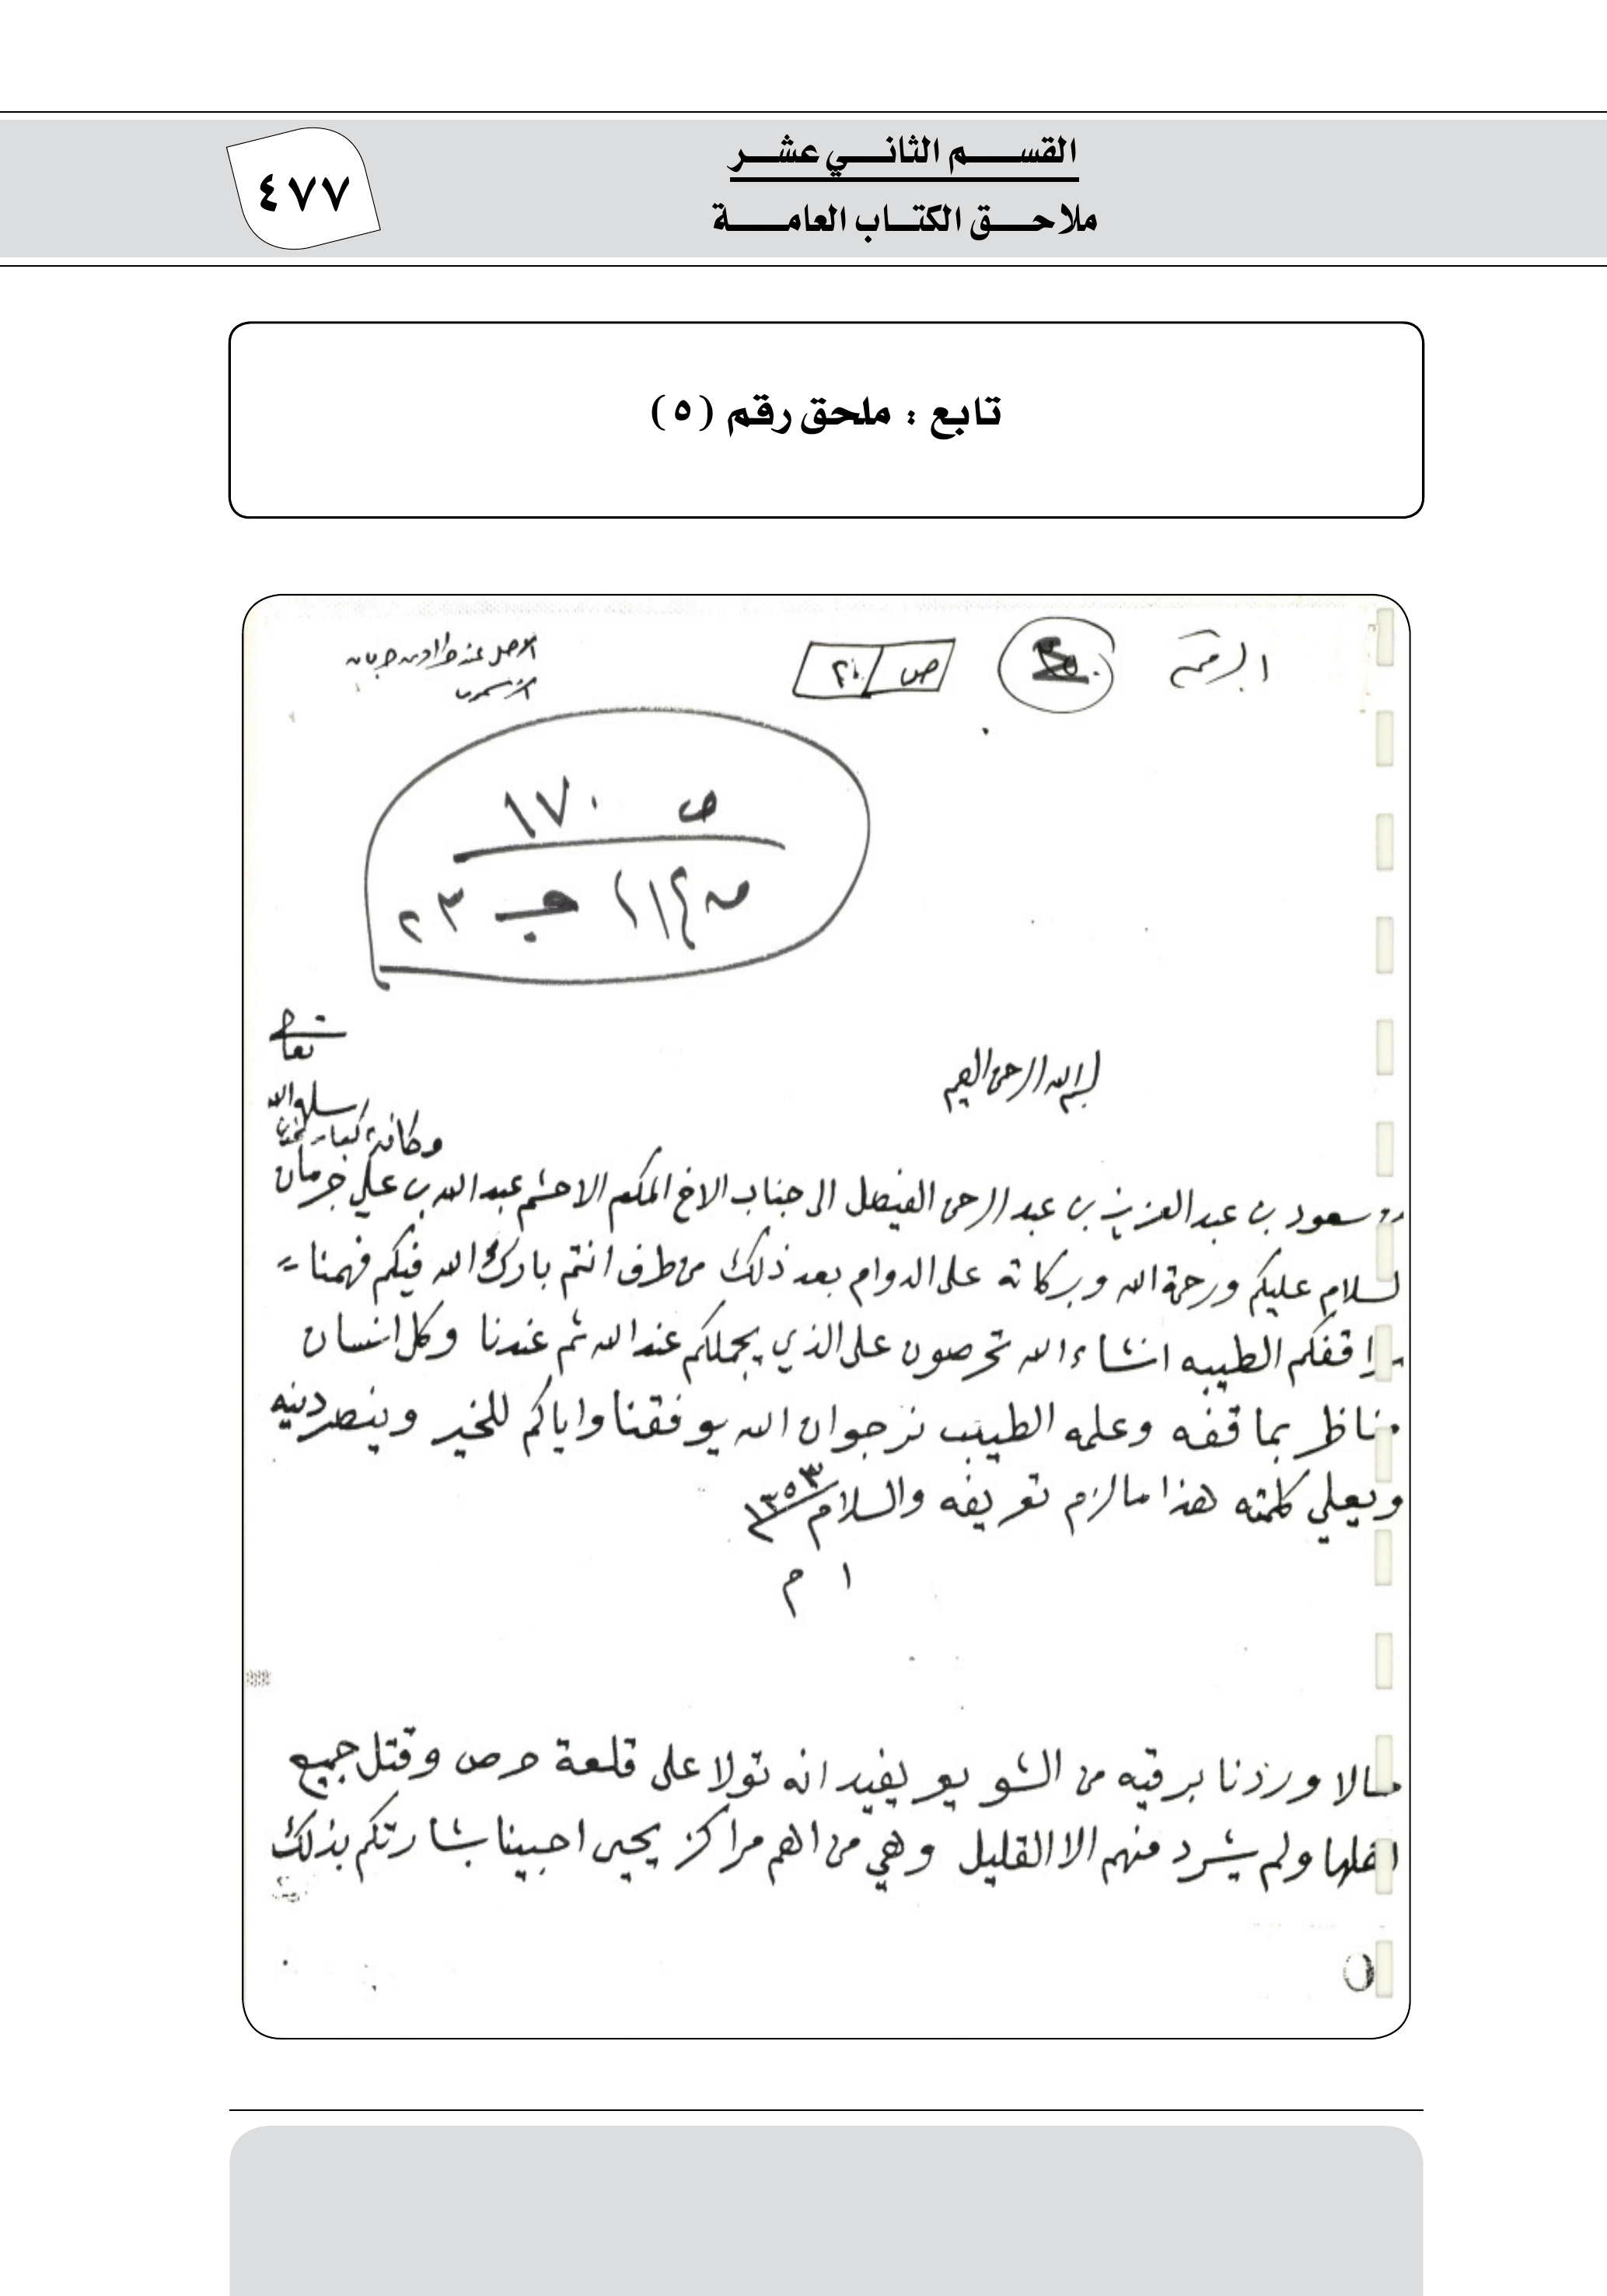 القسم الثاني عشر
ملاحق الكتاب العامة
٤٧٧
تابع : ملحق رقم (٥)
الرقم
ص ٢٠
الاصل عند
ص ١٧٠
ج ٢٣
بسم الله الرحمن الرحيم
سلمه الله
وكافة كبار
سعود بن عبد العزيز بن عبد الرحمن الفيصل الى جناب الاخ المكرم الاحشم عبد الله بن علي جرمان
السلام عليكم ورحمة الله وبركاته على الدوام بعد ذلك من طرف انتم بارك الله فيكم فهمنا
اقفكم الطيبه انشاء الله تحرصون على الذي يجملكم عند الله ثم عندنا وكل انسان
مناظر بماقفه وعلمه الطيب نرجوان الله يوفقنا واياكم للخير وينصر دينه
ويعلي كلمته هذا مالزم تعريفه والسلام ١٣٥٣
حالا وردنا برقيه من الشويعر يفيد انه تولا على قلعة حرض وقتل جميع
اهلها ولم يشرد منهم الا القليل وهي من اهم مراكز يحيى احبينا بشارتكم بذلك